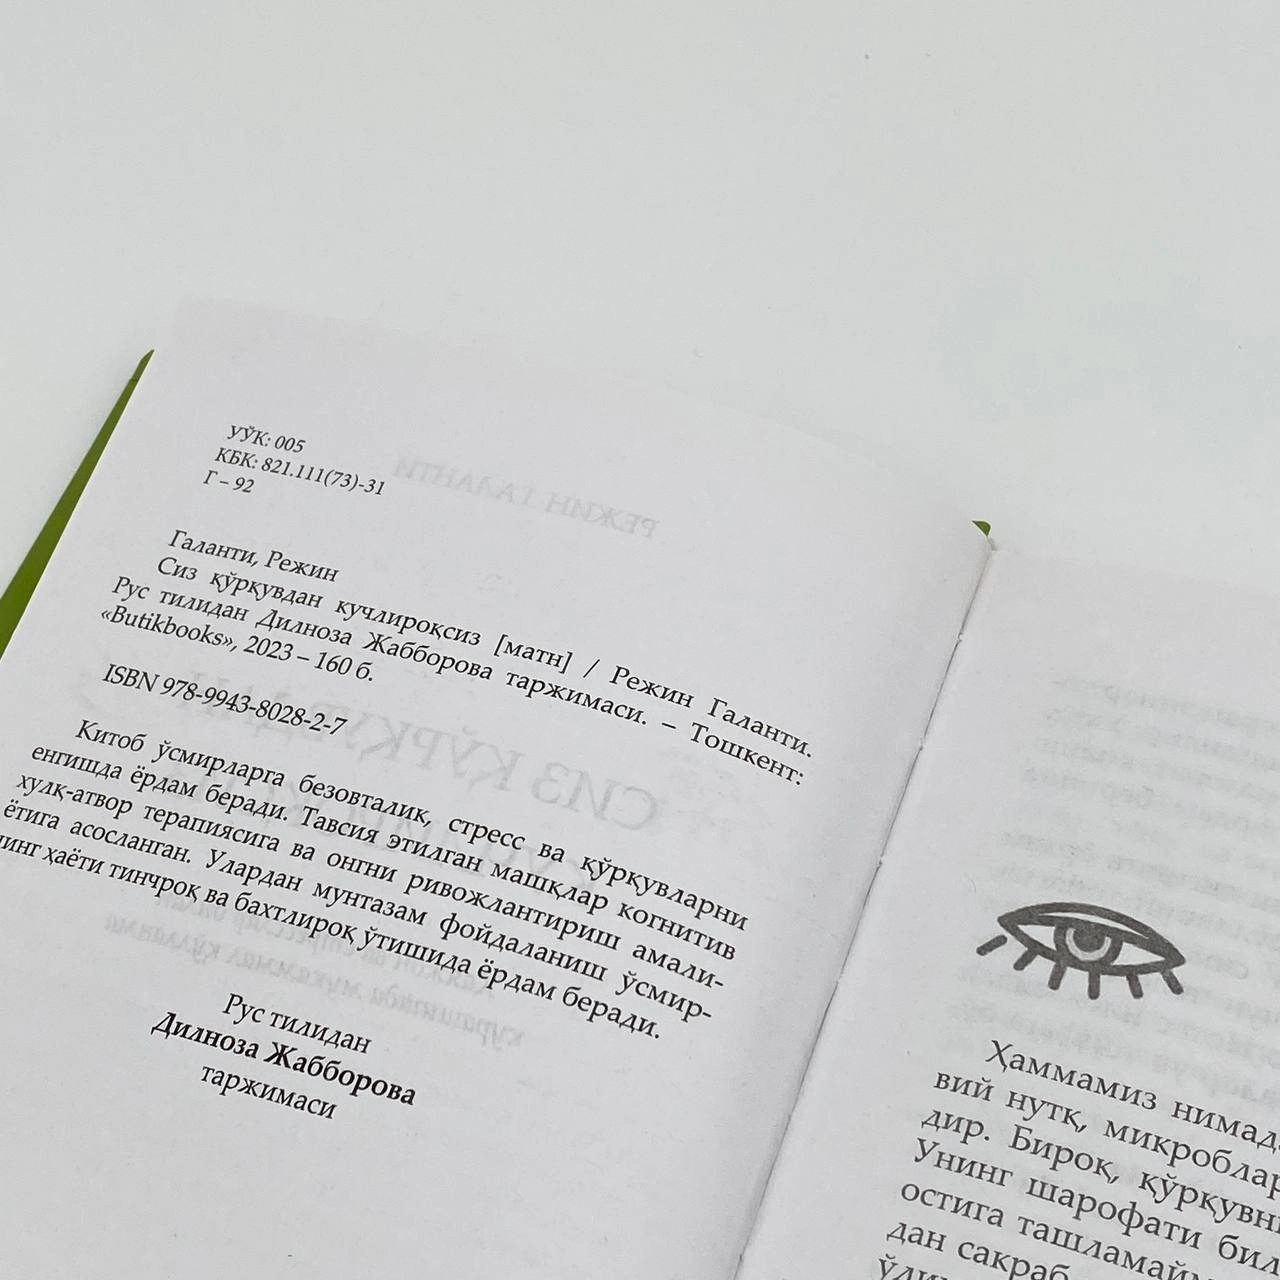 УЎК: 005
КБК: 821.111(73)-31
Г – 92
Галанти, Режин
Сиз қўрқувдан кучлироқсиз [матн] / Режин Галанти.
Рус тилидан Дилноза Жабборова таржимаси. – Тошкент:
«Butikbooks», 2023 – 160 б.
ISBN 978-9943-8028-2-7
Китоб ўсмирларга безовталик, стресс ва қўрқувларни
енгишда ёрдам беради. Тавсия этилган машқлар когнитив
хулқ-атвор терапиясига ва онгни ривожлантириш амали-
ётига асосланган. Улардан мунтазам фойдаланиш ўсмир-
нинг ҳаёти тинчроқ ва бахтлироқ ўтишида ёрдам беради.
Рус тилидан
Дилноза Жабборова
таржимаси
РЕЖИН ГАЛАНТИ
СИЗ ҚЎРҚУВДАН
Ҳаммамиз
вий нутқ,
дир. Бироқ,
Унинг шарофати
остига
дан